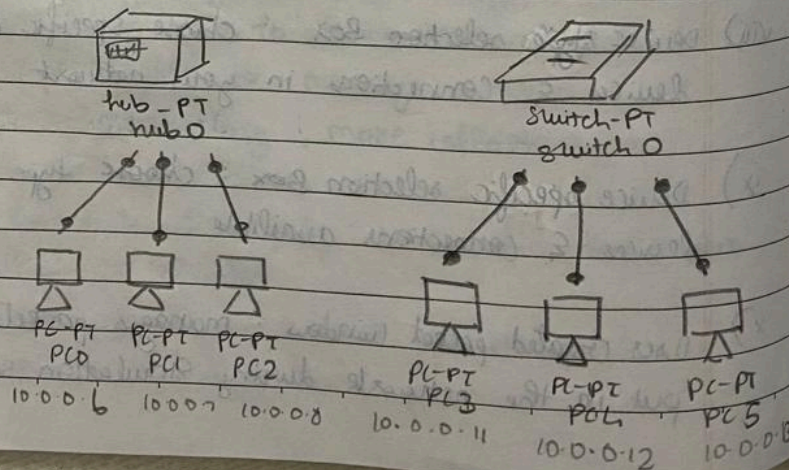 hub_PT
hub0
Switch-PT
switch 0
PC-PT
PC0
PC-PT
PC1
PC-PT
PC2
PC-PT
PC3
PC-PT
PC4
PC-PT
PC5
10.0.0.6
10.0.0.7
10.0.0.8
10.0.0.11
10.0.0.12